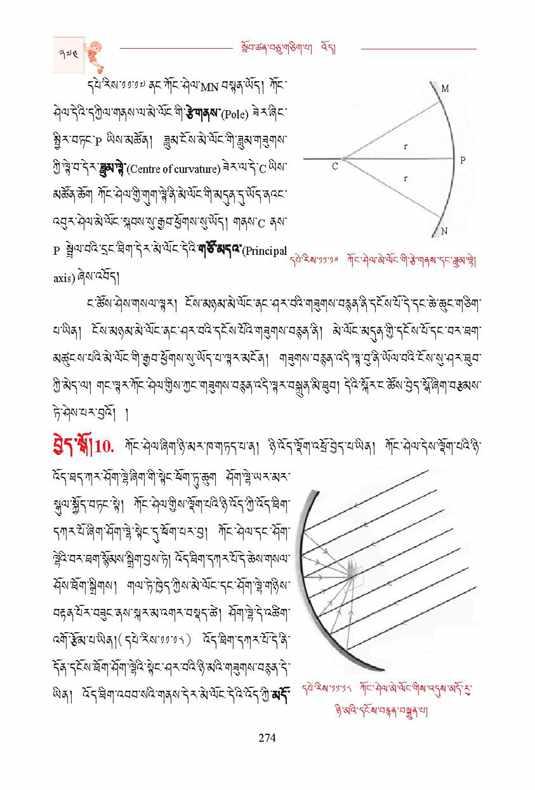 ༢༧༤
སློབ་ཚན་བཅུ་གཅིག་པ། འོད།
དཔེ་རིས་༡༡.༡༧ ནང་ཀོང་ཤེལ་MN བསྟན་ཡོད། ཀོང་
ཤེལ་དེའི་དཀྱིལ་གནས་ལ་མེ་ལོང་གི་རྩེ་གནས་(Pole) ཟེར་ཞིང་
སྤྱིར་བཏང་P ཡིས་མཚོན། ཟླུམ་ངོས་མེ་ལོང་གི་ཟླུམ་གཟུགས་
ཀྱི་ལྟེ་བ་དེར་ཟླུམ་ལྟེ་(Centre of curvature) ཟེར་ལ་དེ་C ཡིས་
མཚོན་ཆོག ཀོང་ཤེལ་གྱི་གུག་ལྟེ་ནི་མེ་ལོང་གི་མདུན་དུ་ཡོད་ནའང་
འབུར་ཤེལ་མེ་ལོང་སྐབས་སུ་རྒྱབ་ཕྱོགས་སུ་ཡོད། གནས་C ནས་
P སྦྲེལ་བའི་དྲང་ཐིག་དེར་མེ་ལོང་དེའི་གཙོ་མདའ་(Principal
axis) ཞེས་འབོད།
M
r
C
P
r
N
དཔེ་རིས་༡༡.༡༧ ཀོང་ཤེལ་མེ་ལོང་གི་རྩེ་གནས་དང་ཟླུམ་ལྟེ།
ང་ཚོས་ཤེས་གསལ་ལྟར། ངོས་མཉམ་མེ་ལོང་ནང་ཤར་བའི་གཟུགས་བརྙན་ནི་དངོས་པོ་དེ་དང་ཆེ་ཆུང་གཅིག་
པ་ཡིན། ངོས་མཉམ་མེ་ལོང་ནང་ཤར་བའི་དངོས་པོའི་གཟུགས་བརྙན་ནི། མེ་ལོང་མདུན་གྱི་དངས་པོ་དང་བར་ཐག་
མཚུངས་པའི་མེ་ལོང་གི་རྒྱབ་ཕྱོགས་སུ་ཡོད་པ་ལྟར་མངོན། གཟུགས་བརྙན་འདི་ལྟ་བུ་ནི་ཡོལ་བའི་ངོས་སུ་ཤར་ཐུབ་
ཀྱི་མེད་ལ། གང་ལྟར་ཀོང་ཤེལ་གྱིས་ཀྱང་གཟུགས་བརྙན་འདི་ལྟར་བསྐྲུན་མི་ཐུབ། དེའི་སྐོར་ང་ཚོས་བྱེད་སྒོ་ཞིག་བརྩམས་
ཏེ་ཤེས་པར་བྱའོ། །
བྱེད་སྒོ།10. ཀོང་ཤེལ་ཞིག་ཉི་མར་ཁ་གཏད་པ་ན། ཉི་འོད་ལྡོག་འཕྲོ་བྱེད་པ་ཡིན། ཀོང་ཤེལ་དེས་ལྡོག་པའི་ཉི་
འོད་བད་ཀར་ཤོག་ལྷེ་ཞིག་གི་སྟེང་ཕོག་ཏུ་ཆུག ཤོག་ལྷེ་ཡར་མར་
སྒུལ་སྐྱོད་བཏང་སྟེ། ཀོང་ཤེལ་གྱིས་ལྡོག་པའི་ཉི་འོད་ཀྱི་འོད་ཐིག་
དཀར་པོ་ཞིག་ཤོག་ལྷེ་སྟེང་དུ་ཕོག་པར་བྱ། ཀོང་ཤེལ་དང་ཤོག་
ལྷེའི་བར་ཐག་སྙོམས་སྒྲིག་བྱས་ཏེ། འོད་ཐིག་དཀར་པོ་དེ་ཆེས་གསལ་
ཤོས་ཐོག་སྒྲིགས། གལ་ཏེ་ཁྱེད་ཀྱིས་མེ་ལོང་དང་ཤོག་ལྷེ་གཉིས་
བརྟན་པོར་བཟུང་ནས་སྐར་མ་འགར་བསྡད་ཚེ། ཤོག་ལྷེ་དེ་འཚིག་
འགོ་རྩོམ་པ་ཡིན།(དཔེ་རིས་༡༡.༡༨) འོད་ཐིག་དཀར་པོ་དེ་ནི་
དོན་དངོས་ཐོག་ཤོག་ལྷེའི་སྟེང་ཤར་བའི་ཉི་མའི་གཟུགས་བརྙན་དེ་
ཡིན། འོད་ཐིག་འབབ་སའི་གནས་དེར་མེ་ལོང་དེའི་འོད་ཀྱི་མདོ་
དཔེ་རིས་༡༡.༡༨ ཀོང་ཤེལ་མེ་ལོང་གིས་འདུས་མདོ་རུ་
ཉི་མའི་དངོས་བརྙན་བསྐྲུན་པ།
274